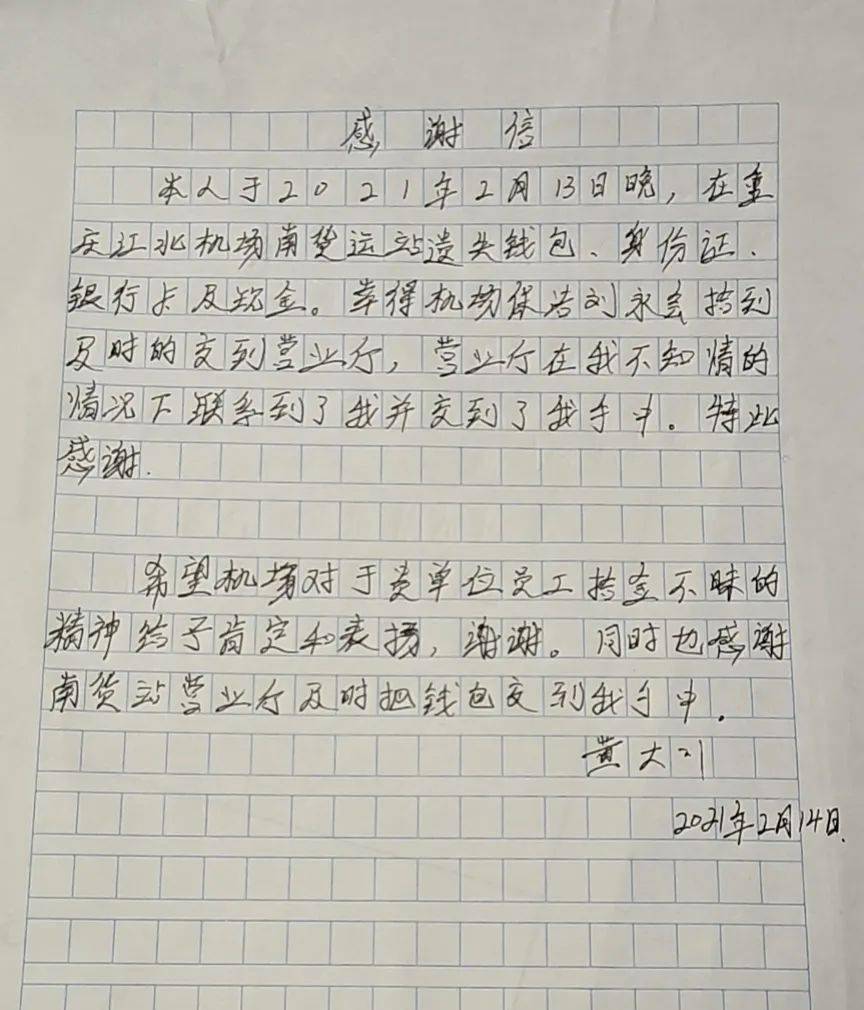 感谢信
本人于2021年2月13日晚，在重
庆江北机场南货运站遗失钱包、身份证、
银行卡及现金。幸得机场保洁刘永会拾到
及时的交到营业厅，营业厅在我不知情的
情况下联系到了我并交到了我手中。特此
感谢.
希望机场对于贵单位员工拾金不昧的
精神给予肯定和表扬，谢谢。同时也感谢
南货站营业厅及时把钱包交到我手中。
黄大
2021年2月14日.